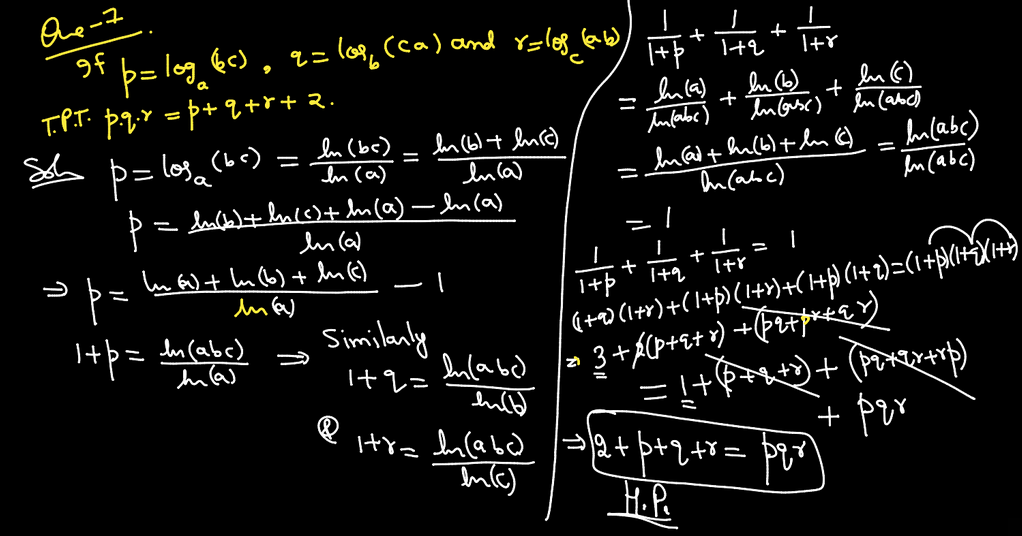 Que-7
If p = log_a(bc), q = log_b(ca) and r = log_c(ab)
T.P.T. p.q.r = p+q+r+2.
Soln p = log_a(bc) = ln(bc)/ln(a) = (ln(b) + ln(c))/ln(a)
p = (ln(b) + ln(c) + ln(a) - ln(a))/ln(a)
⇒ p = (ln(a) + ln(b) + ln(c))/ln(a) - 1
1+p = ln(abc)/ln(a) ⇒ Similarly
1+q = ln(abc)/ln(b)
& 1+r = ln(abc)/ln(c)
1/(1+p) + 1/(1+q) + 1/(1+r)
= ln(a)/ln(abc) + ln(b)/ln(abc) + ln(c)/ln(abc)
= (ln(a) + ln(b) + ln(c))/ln(abc) = ln(abc)/ln(abc)
= 1
1/(1+p) + 1/(1+q) + 1/(1+r) = 1
(1+q)(1+r)+(1+p)(1+r)+(1+p)(1+q)=(1+p)(1+q)(1+r)
⇒ 3 + 2(p+q+r) + (pq+pr+qr)
= 1 + (p+q+r) + (pq+qr+rp)
+ pqr
⇒ 2+p+q+r = pqr
H.P.